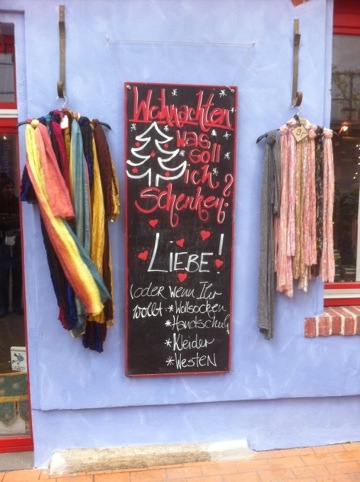 Weihnachten
was
soll
ich
schenken?
LIEBE!
(oder wenn Ihr
wollt: *Wollsocken
*Handschuh
*Kleider
*Westen